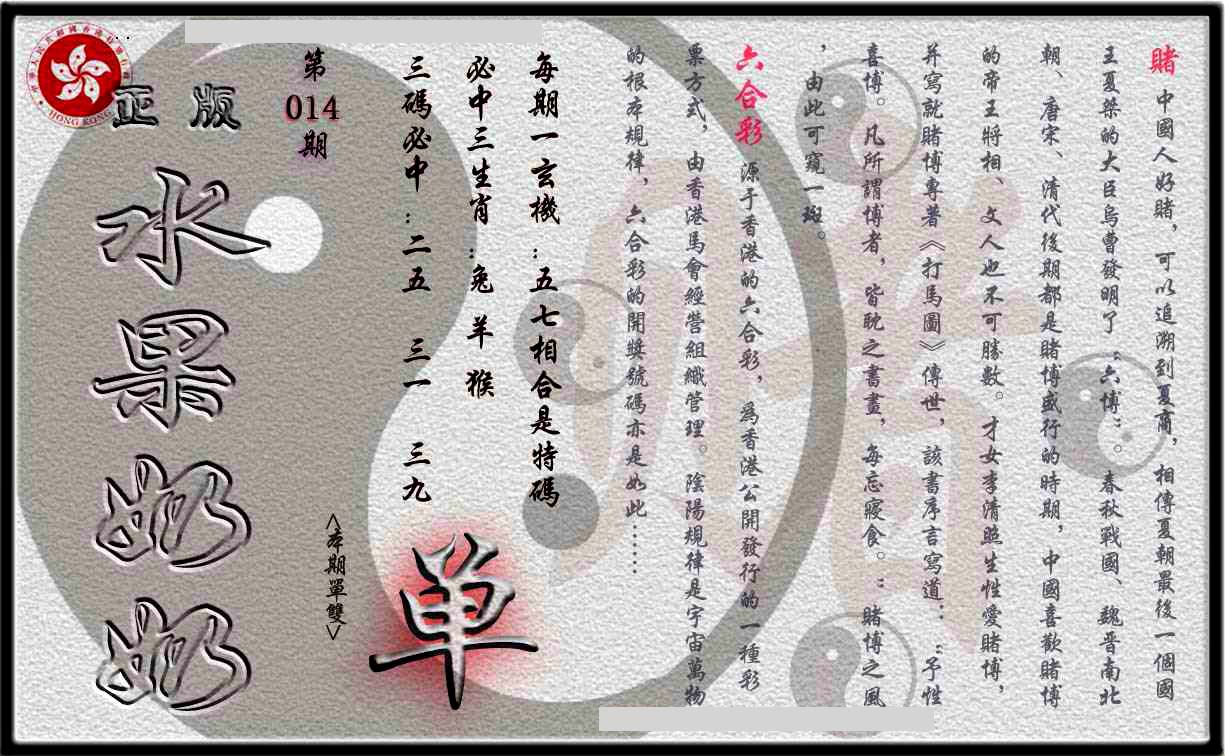 賭 中國人好賭，可以追溯到夏商，相傳夏朝最後一個國
王夏桀的大臣烏曹發明了“六博”。春秋戰國、魏晋南北
朝、唐宋、清代後期都是賭博盛行的時期，中國喜歡賭博
的帝王將相、文人也不可勝數。才女李清照生性愛賭博，
并寫就賭博專著《打馬圖》傳世，該書序言寫道：“予性
喜博。凡所謂博者，皆耽之書畫，每忘寢食。：賭博之風
，由此可窺一斑。
六合彩 源于香港的六合彩，為香港公開發行的一種彩
票方式，由香港馬會經營組織管理。陰陽規律是宇宙萬物
的根本規律，六合彩的開獎號碼亦是如此……
每期一玄機：五七相合是特碼
必中三生肖：兔 羊 猴
三碼必中：二五 三一 三九
单
<本期單雙>
第
014
期
正版
水果奶奶
HONG KONG